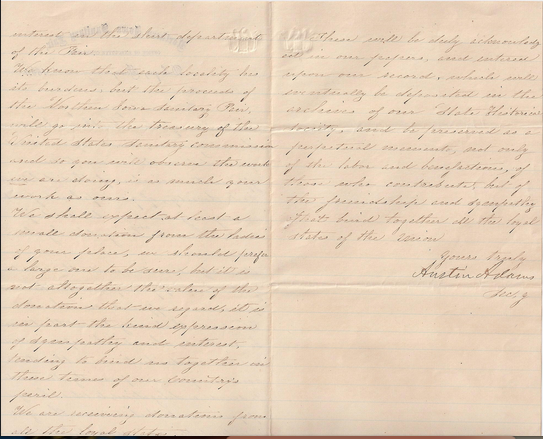 interest in the short department
of the Fair
We know that each locality has
its burdens, but the proceeds of
the Northern Iowa Sanitary Fair,
will go into the treasury of the
United States Sanitary Commission
and so you will observe the work
we are doing, is as much your
work as ours.
We shall expect at least a
small donation from the ladies
of your place, we should prefer
a large one to be sure, but it is
not altogether the value of the
donations that we regard, it is
in part the kind expression
of sympathy and interest,
tending to bind us together in
these times of our Country's
peril.
We are receiving donations from
all the loyal states.
These will be duly acknowledg
ed in our papers, and entered
upon our record, which will
eventually be deposited in the
archives of our State Historical
and be preserved as a
perpetual monument, not only
of the labor and benefactions, of
those who contributed, but of
the friendship and sympathy
that bind together all the loyal
states of the Union
Yours truly
Austin Adams
Sec.y